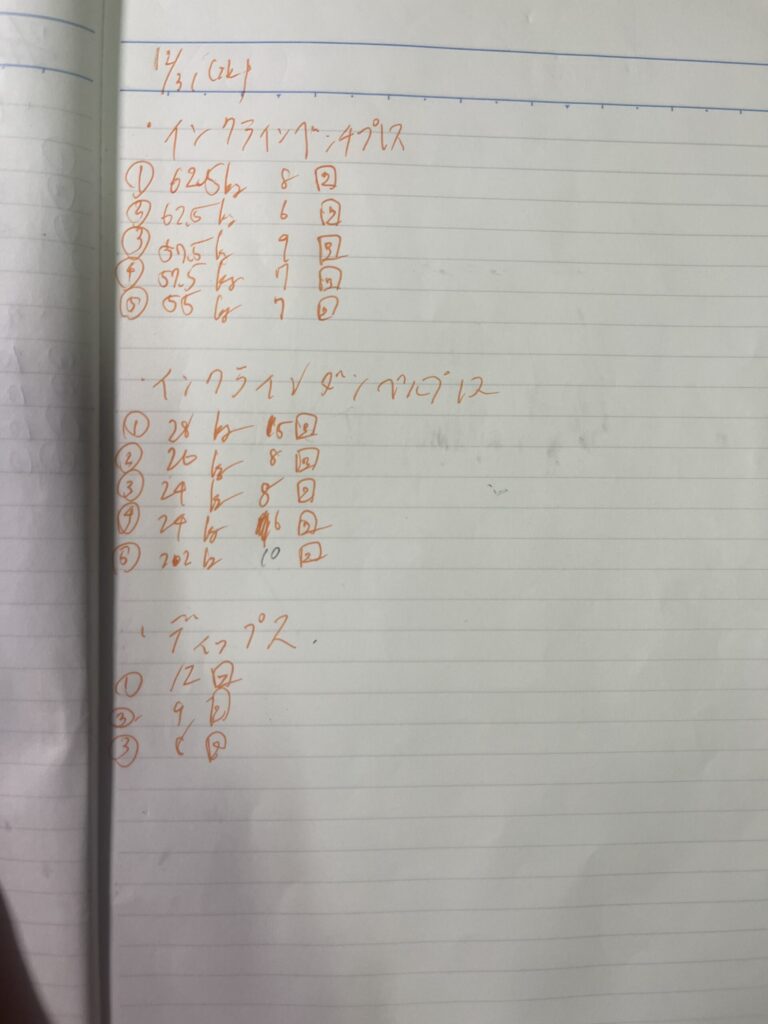 12/31(水)
・インクラインベンチプレス
① 62.5kg 8 回
② 62.5kg 6 回
③ 57.5kg 9 回
④ 57.5kg 7 回
⑤ 55kg 7 回
・インクラインダンベルプレス
① 28kg 回
② 26kg 8 回
③ 24kg 8 回
④ 24kg 6 回
⑤ kg 10 回
・ディップス
① 12 回
② 9 回
③ 回